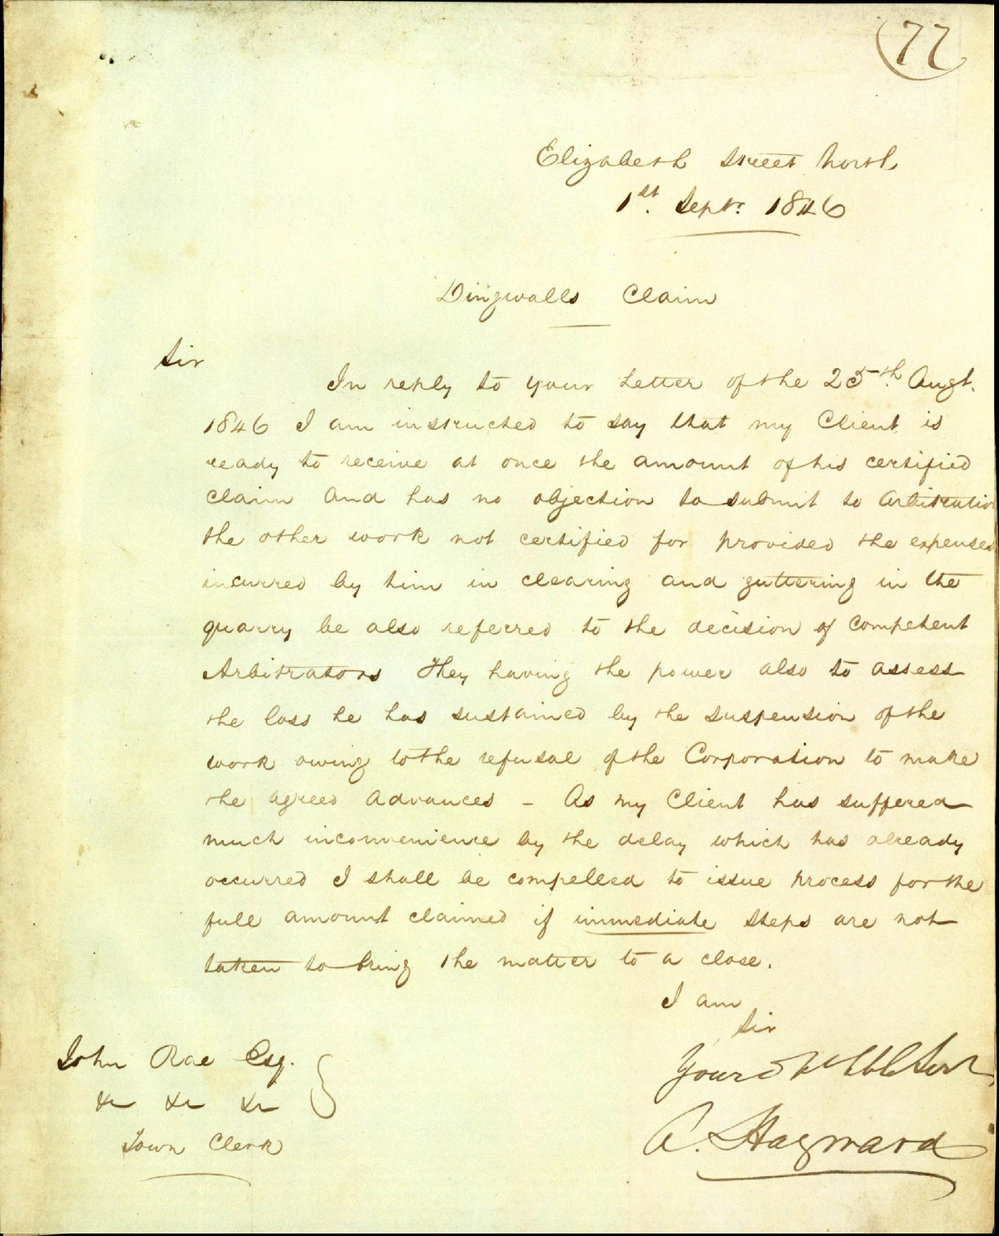 77
Elizabeth Street North
1st. Septr. 1846
Dingwalls Claim
Sir
In reply to your Letter of the 25th. Augt.
1846 I am instructed to say that my Client is
ready to receive at once the amount of his certified
claim and has no objection to submit to Arbitration
the other work not certified for provided the expenses
incurred by him in clearing and guttering in the
quarry be also referred to the decision of Competent
Arbitrators They having the power also to assess
the loss he has sustained by the suspension of the
work owing to the refusal of the Corporation to make
the agreed advances - As my Client has suffered
much inconvenience by the delay which has already
occurred I shall be compelled to issue process for the
full amount claimed if immediate steps are not
taken to bring the matter to a close.
I am
Sir
Your
A. Hayward
John Rae Esq.
&c &c &c
Town Clerk